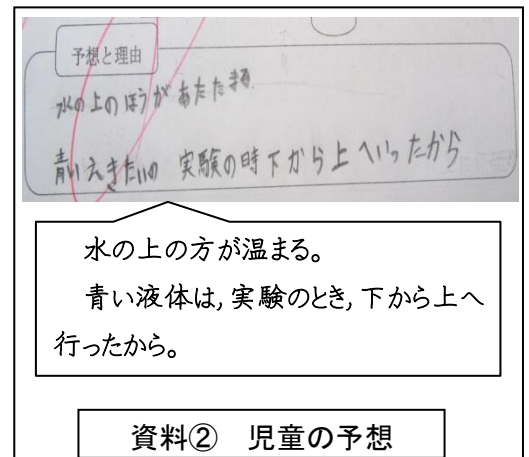 予想と理由
水の上のほうがあたたまる
青いえきたいの 実験の時下から上へいったから
水の上の方が温まる。
青い液体は,実験のとき,下から上へ
行ったから。
資料② 児童の予想